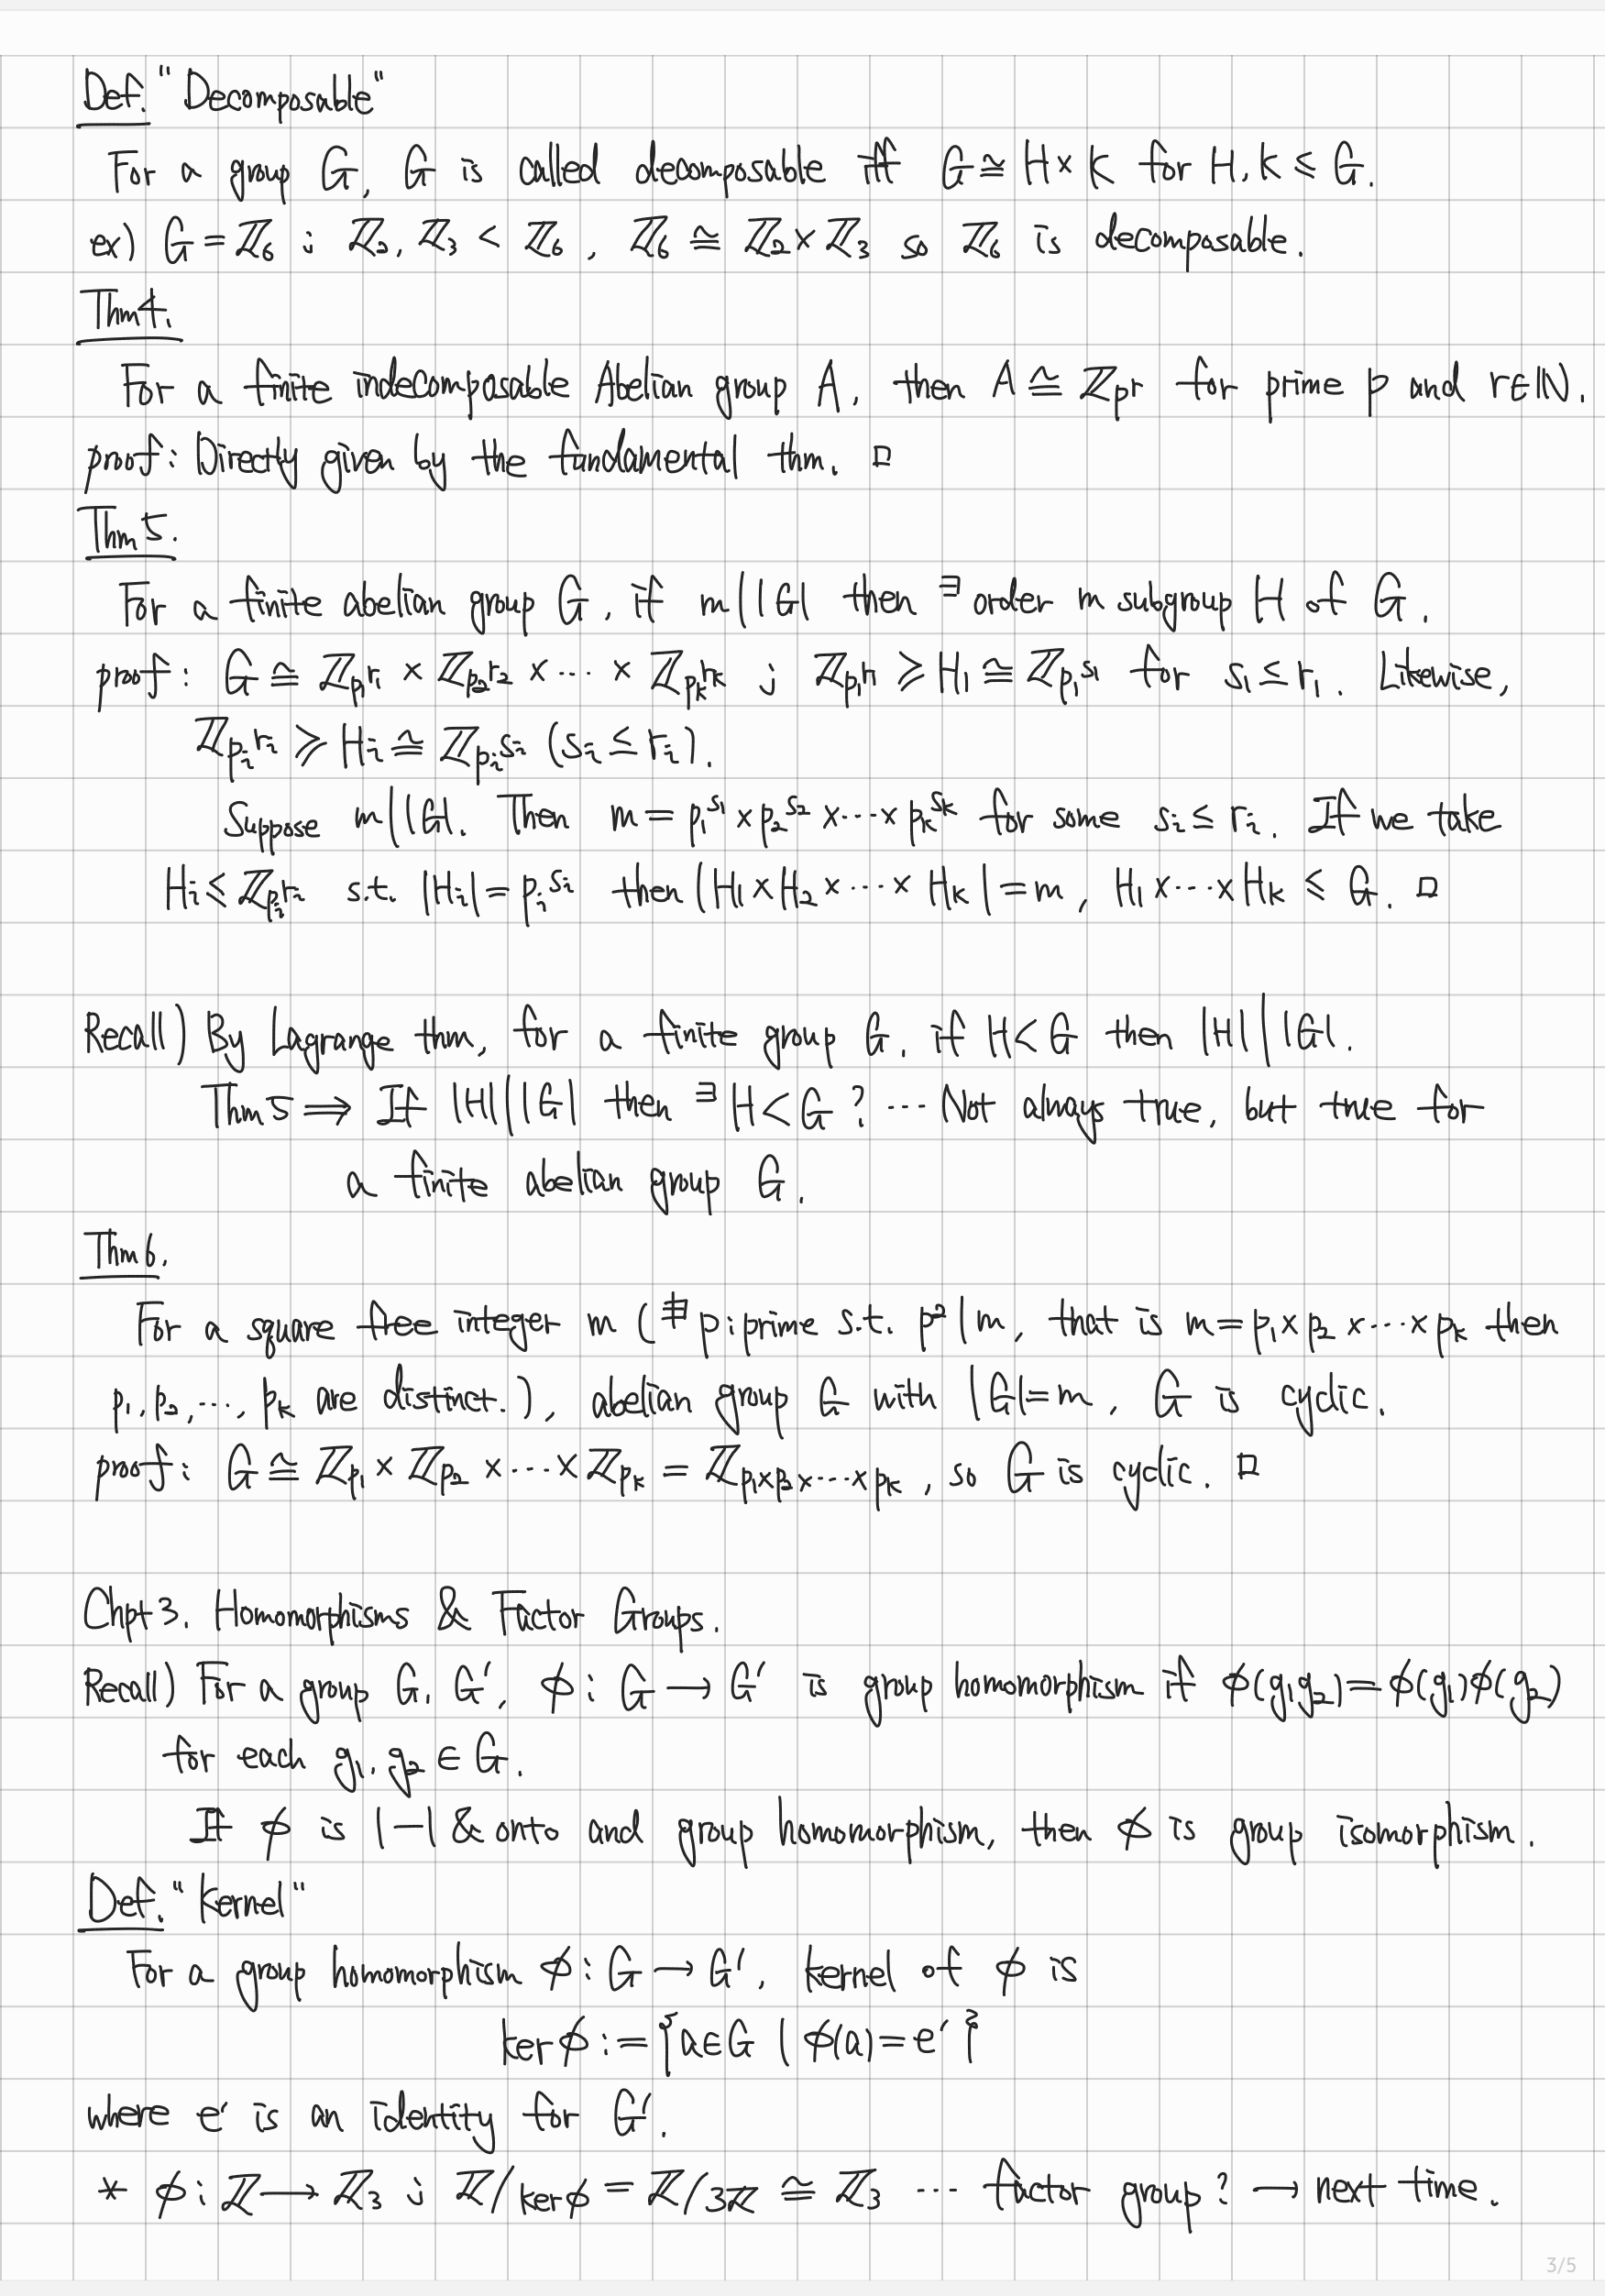 Def. "Decomposable"
For a group G, G is called decomposable iff G ≅ H × K for H, K ≤ G.
ex) G = ℤ₆ ; ℤ₂, ℤ₃ < ℤ₆ , ℤ₆ ≅ ℤ₂ × ℤ₃ so ℤ₆ is decomposable.
Thm4.
For a finite indecomposable Abelian group A, then A ≅ ℤ_{p^r} for prime p and r∈ℕ.
proof : Directly given by the fundamental thm. □
Thm5.
For a finite abelian group G, if m | |G| then ∃ order m subgroup H of G.
proof : G ≅ ℤ_{p₁^{r₁}} × ℤ_{p₂^{r₂}} × ⋯ × ℤ_{p_k^{r_k}} ; ℤ_{p₁^{r₁}} ≥ H₁ ≅ ℤ_{p₁^{s₁}} for s₁ ≤ r₁. Likewise,
ℤ_{p_i^{r_i}} ≥ H_i ≅ ℤ_{p_i^{s_i}} (s_i ≤ r_i).
Suppose m | |G|. Then m = p₁^{s₁} × p₂^{s₂} × ⋯ × p_k^{s_k} for some s_i ≤ r_i. If we take
H_i ≤ ℤ_{p_i^{r_i}} s.t. |H_i| = p_i^{s_i} then |H₁ × H₂ × ⋯ × H_k| = m, H₁ × ⋯ × H_k ≤ G. □
Recall) By Lagrange thm, for a finite group G, if H < G then |H| | |G|.
Thm5 ⟹ If |H| | |G| then ∃ H < G ? ⋯ Not always true, but true for
a finite abelian group G.
Thm6.
For a square free integer m (∄ p : prime s.t. p² | m, that is m = p₁ × p₂ × ⋯ × p_k then
p₁, p₂, ⋯, p_k are distinct.), abelian group G with |G| = m, G is cyclic.
proof : G ≅ ℤ_{p₁} × ℤ_{p₂} × ⋯ × ℤ_{p_k} = ℤ_{p₁×p₂×⋯×p_k}, so G is cyclic. □
Chpt3. Homomorphisms & Factor Groups.
Recall) For a group G, G′, φ : G → G′ is group homomorphism if φ(g₁g₂) = φ(g₁)φ(g₂)
for each g₁, g₂ ∈ G.
If φ is 1-1 & onto and group homomorphism, then φ is group isomorphism.
Def. "Kernel"
For a group homomorphism φ : G → G′, kernel of φ is
ker φ := {a∈G | φ(a) = e′}
where e′ is an identity for G′.
* φ : ℤ → ℤ₃ ; ℤ/ker φ = ℤ/3ℤ ≅ ℤ₃ ⋯ factor group? → next time.
3/5